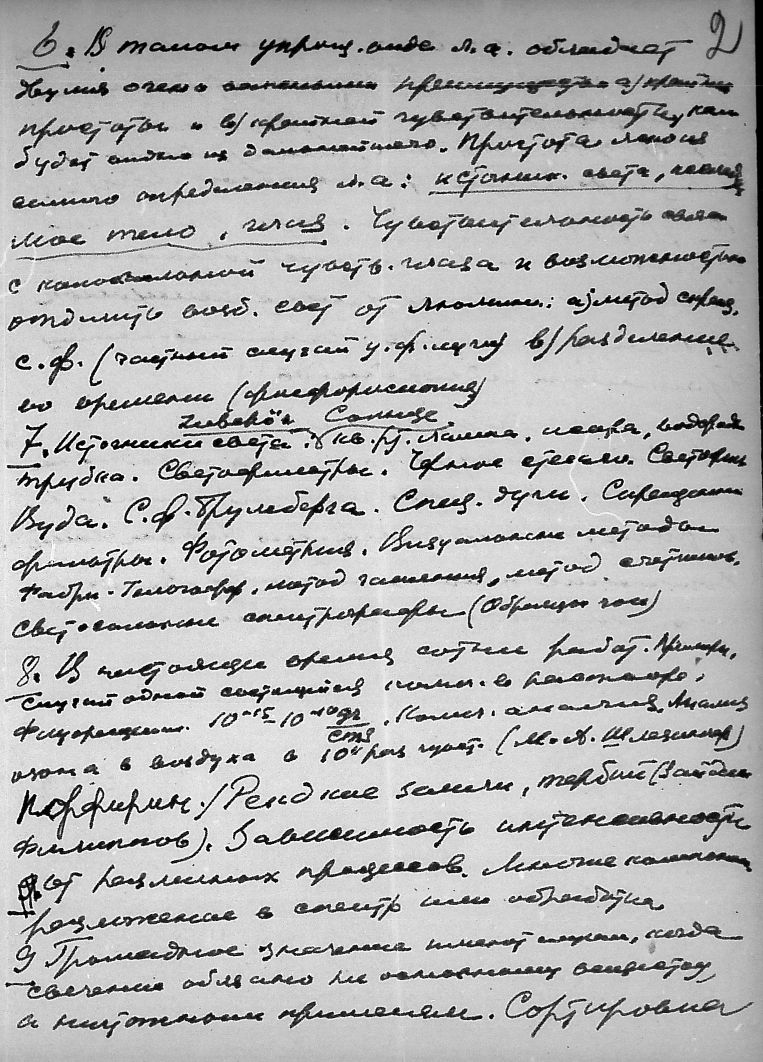 2
6. В таком упрощ. виде л.а. обладает
двумя очень важными преимущества а) крайней
простоты и в) крайней чувствительности, как
будет видно из дальнейшего. Простота
определения л.а: источник света,
мое тело, глаз. Чувствительность связ
с колоссальной чувств. глаза и возможностью
отделить возб. свет от люмин.: а) метод скрещ.
с.ф. (частный случай у.ф. лучи) в) разделение
во времени (фосфоресценция)
Солнце
7. Источники света. кв. рт. лампа, искра, водородн
трубка. Светофильтры. Черное стекло. Светофил
Вуда. С.ф. Трумберга. Спец. дуги. Скрещенные
фильтры. Фотометрия. Визуальные методы
метод гашения, метод счетчиков.
Светосильные спектрографы (Образцы
8. В настоящее время сотни работ. Примеры.
Случай одной составляющей комп. в растворе.
Флуоресцеин. 10⁻¹⁵–10⁻¹⁰ гр/см³. Колич. анализ. Анализ
озона в воздухе в раз чувст. (М.А. Шлезингер)
Порфирин. / Редкие земли, тербий (Зайдель
Филиппов). Зависимость интенсивности
от различных процессов. Многие компоненты
разложение в спектр или обработка
9 Громадное значение имеют случаи, когда
свечение обязано не основному веществу,
а ничтожным примесям. Сортировка